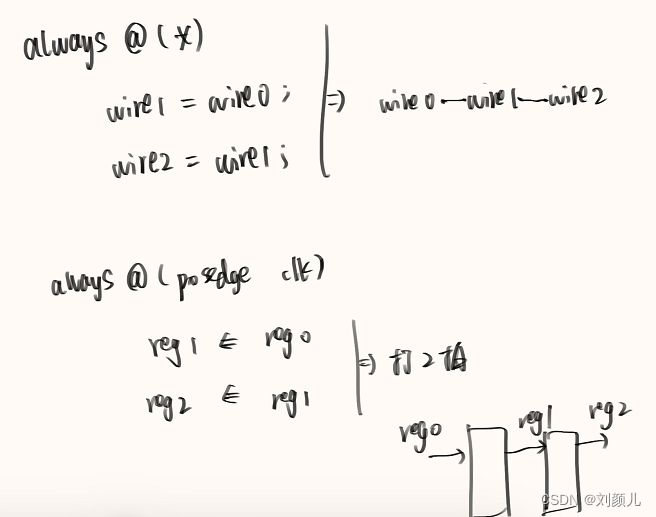 always @(*)
wire1 = wire0 ;
wire2 = wire1 ;
⇒ wire0—wire1—wire2
always @(posedge clk)
reg1 ⇐ reg0
reg2 ⇐ reg1
⇒ 打2拍
reg0 reg1 reg2
CSDN @刘颜儿